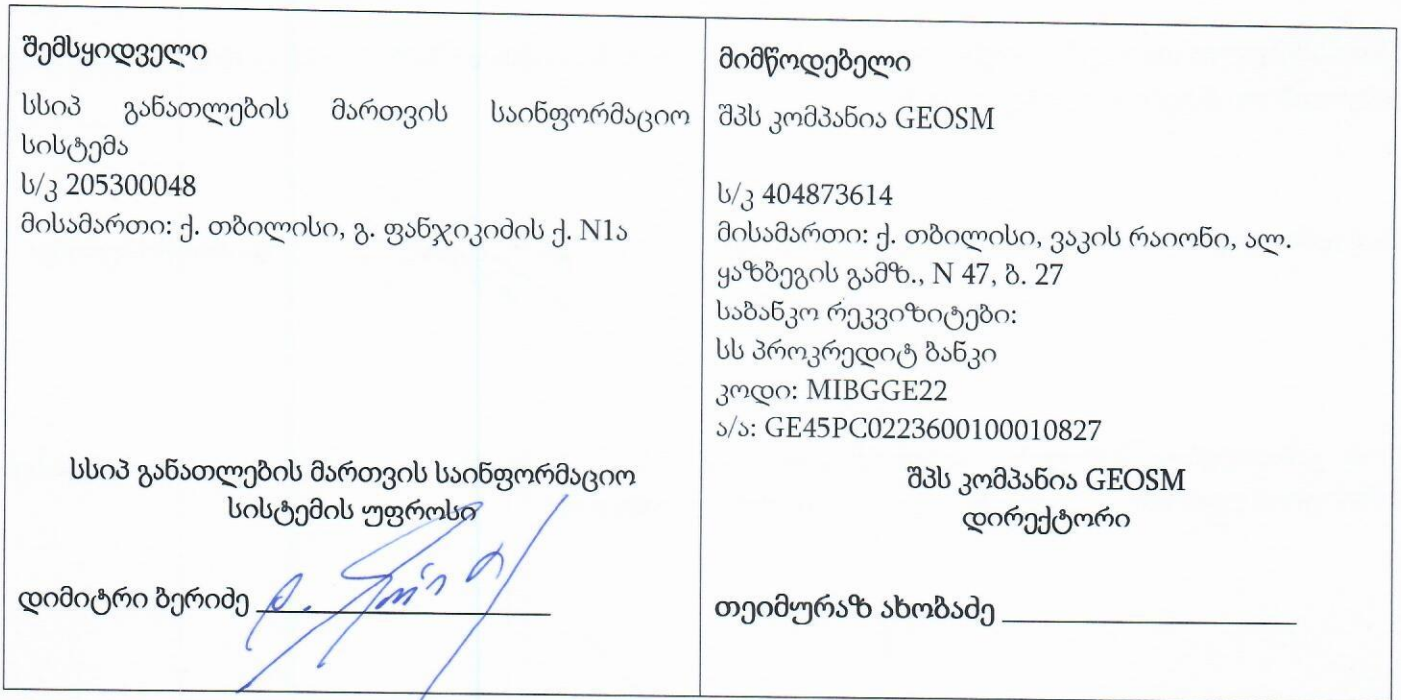 შემსყიდველი
სსიპ განათლების მართვის საინფორმაციო
სისტემა
ს/კ 205300048
მისამართი: ქ. თბილისი, გ. ფანჯიკიძის ქ. N1ა
სსიპ განათლების მართვის საინფორმაციო
სისტემის უფროსი
დიმიტრი ბერიძე
მიმწოდებელი
შპს კომპანია GEOSM
ს/კ 404873614
მისამართი: ქ. თბილისი, ვაკის რაიონი, ალ.
ყაზბეგის გამზ., N 47, ბ. 27
საბანკო რეკვიზიტები:
სს პროკრედიტ ბანკი
კოდი: MIBGGE22
ა/ა: GE45PC0223600100010827
შპს კომპანია GEOSM
დირექტორი
თეიმურაზ ახობაძე